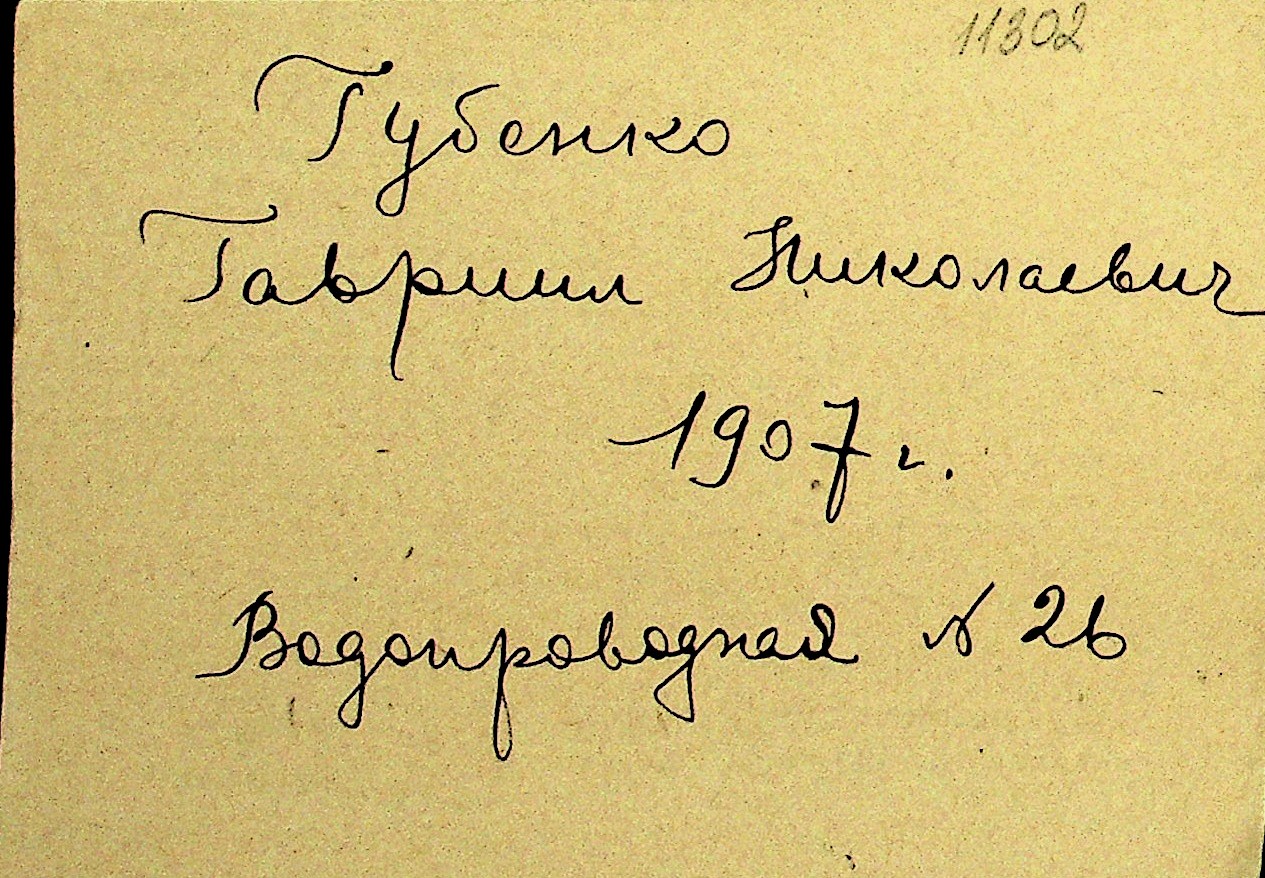 11302
Губенко
Гавриил Николаевич
1907 г.
Водопроводная № 26